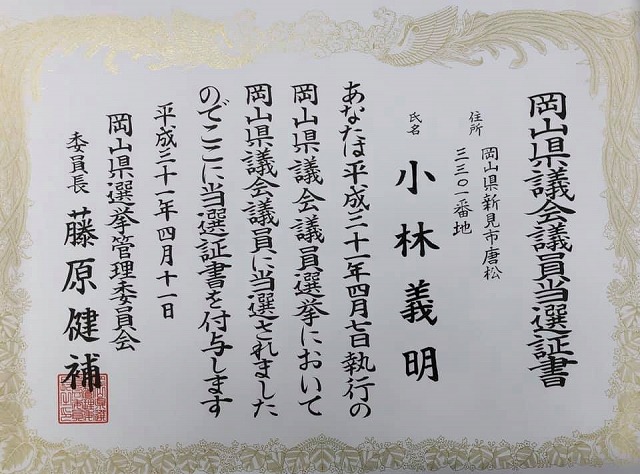 岡山県議会議員当選証書
住所 岡山県新見市唐松
三三〇一番地
氏名 小林義明
あなたは平成三十一年四月七日執行の
岡山県議会議員選挙において
岡山県議会議員に当選されました
のでここに当選証書を付与します
平成三十一年四月十一日
岡山県選挙管理委員会
委員長 藤原健補